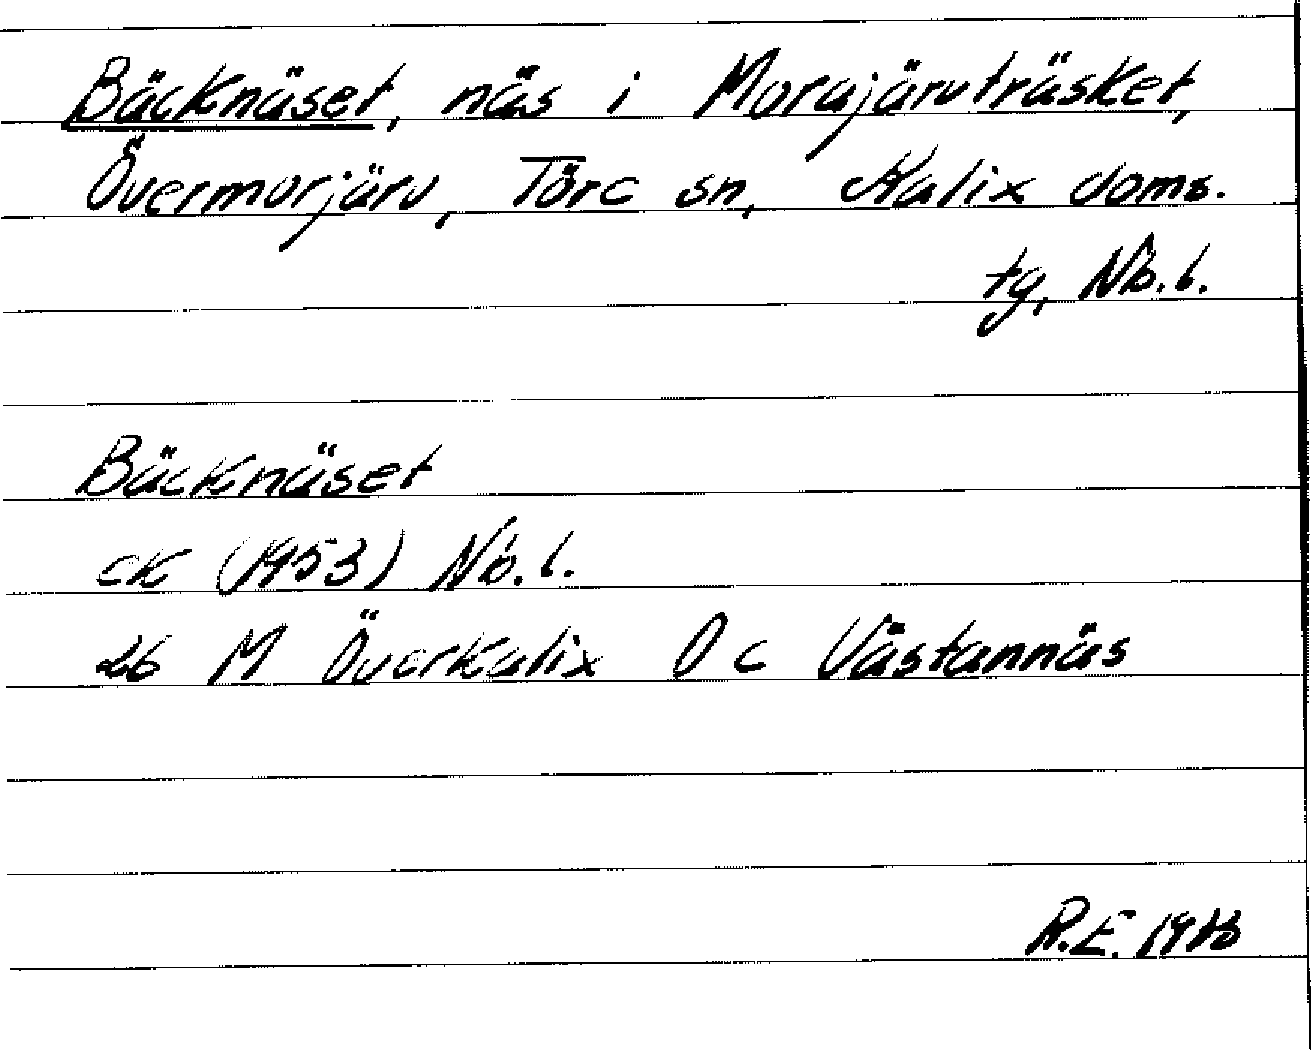 Bäcknäset, näs i Morajärvträsket,
Övermorjärv, Töre sn, Kalix doms.
tg, Nb.l.
Bäcknäset
ek (1953) Nb.l.
26 M Överkalix 0 c Västannäs
R.E.